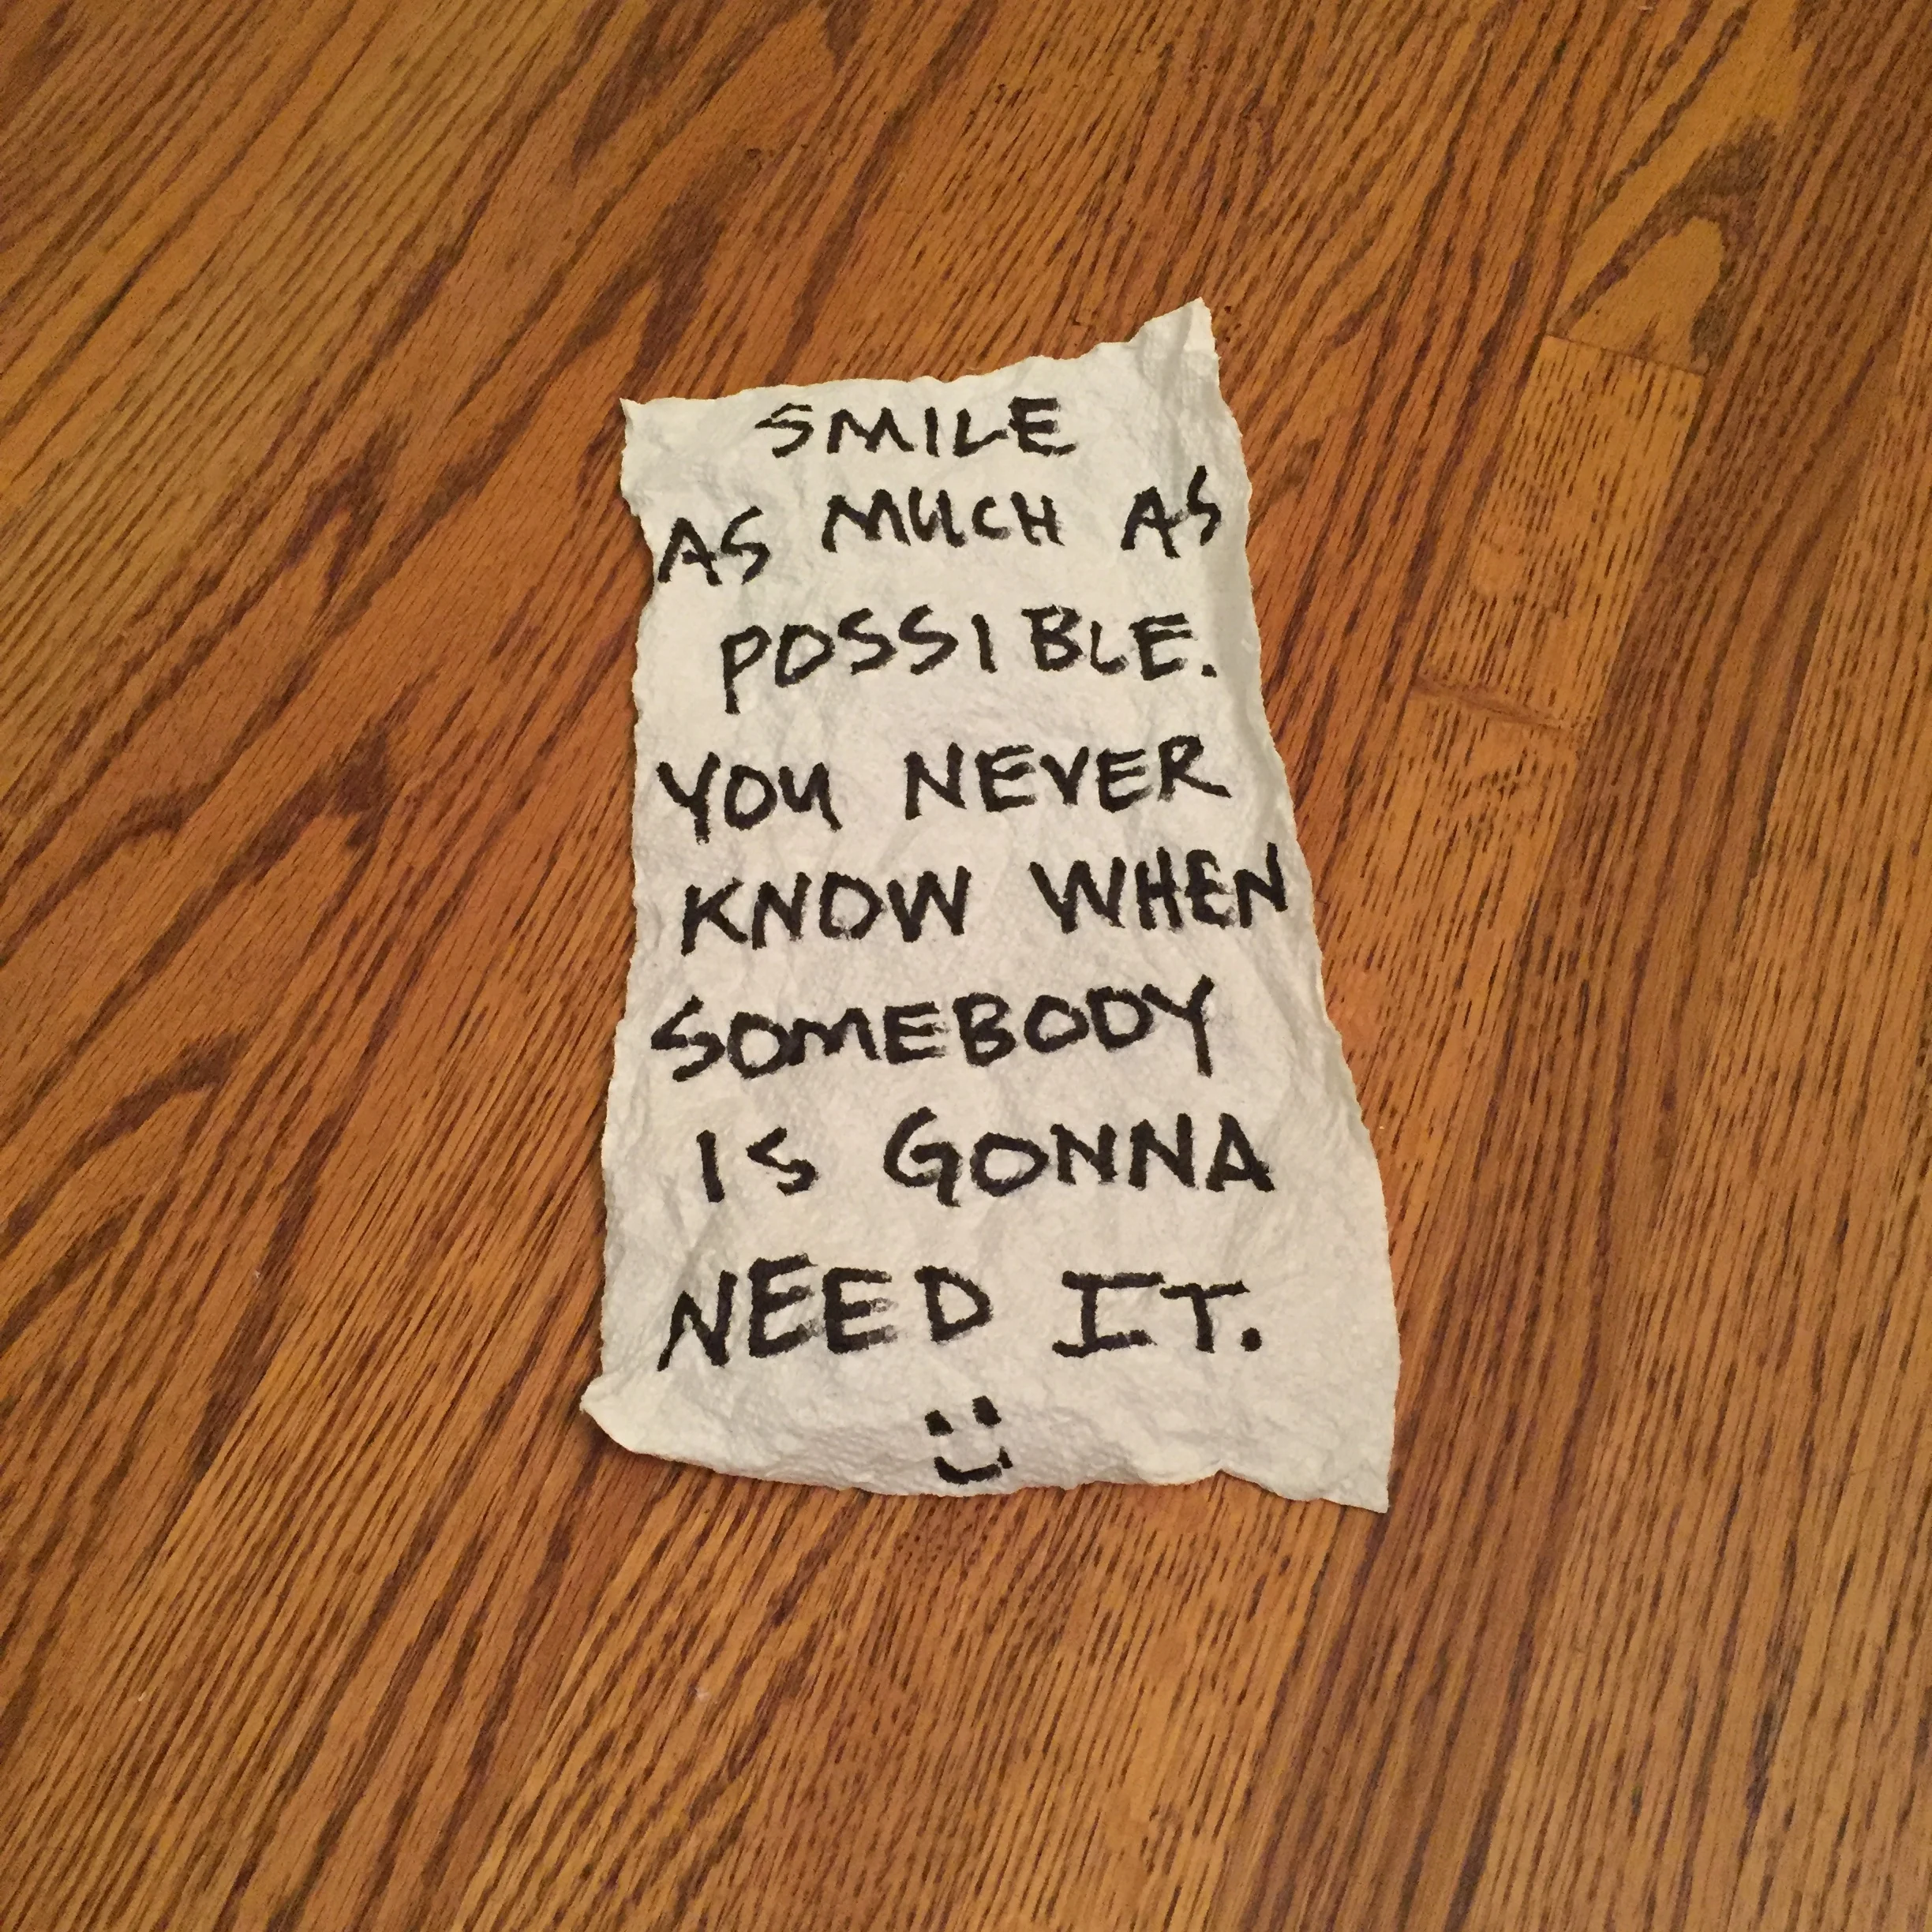 SMILE
AS MUCH AS
POSSIBLE.
YOU NEVER
KNOW WHEN
SOMEBODY
IS GONNA
NEED IT.